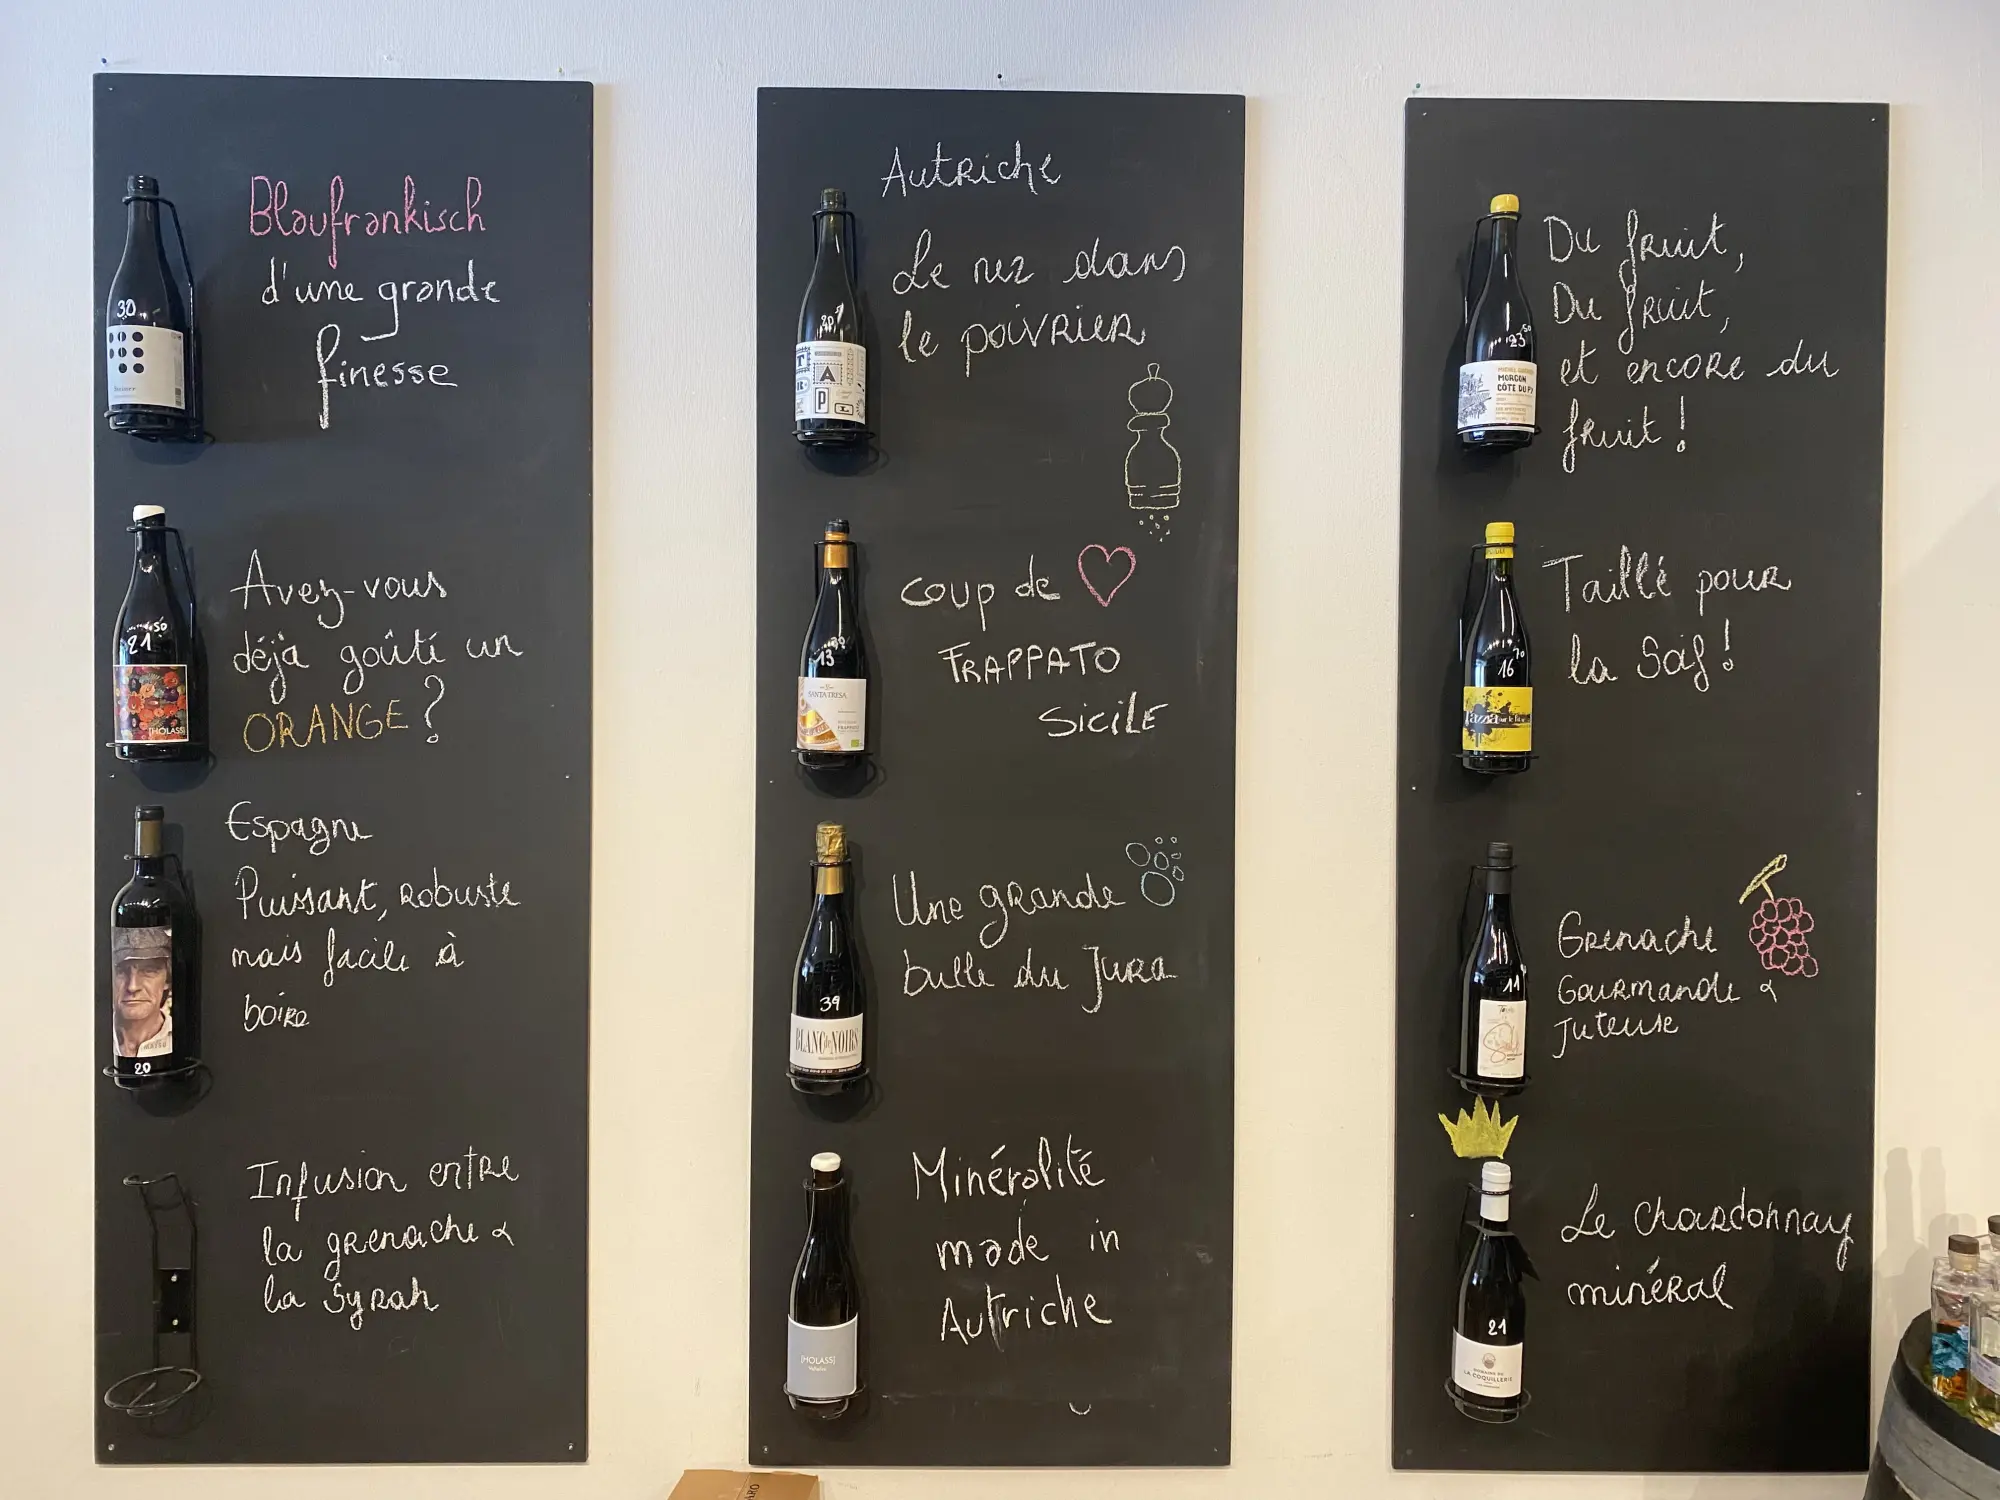 Blaufrankisch
d'une grande
finesse
30
Avez-vous
déjà goûté un
ORANGE ?
21 50
[HOLASS]
Espagne
Puissant, robuste
mais facile à
boire
20
Infusion entre
la grenache &
la Syrah
Autriche
Le nez dans
le poivrier
T
A
P
L
coup de
FRAPPATO
SiciLE
13
SANTA TRESA
FRAPPATO
Une grande
bulle du Jura
39
BLANC de NOIRS
Minéralité
made in
Autriche
[HOLASS]
Du fruit,
Du fruit,
et encore du
fruit !
23 50
MORGON
CÔTE DU PY
Taillé pour
la Soif !
16 70
Grenache
Gourmande &
Juteuse
11
Le Chardonnay
minéral
21
DOMAINE DE
LA COQUILLERIE